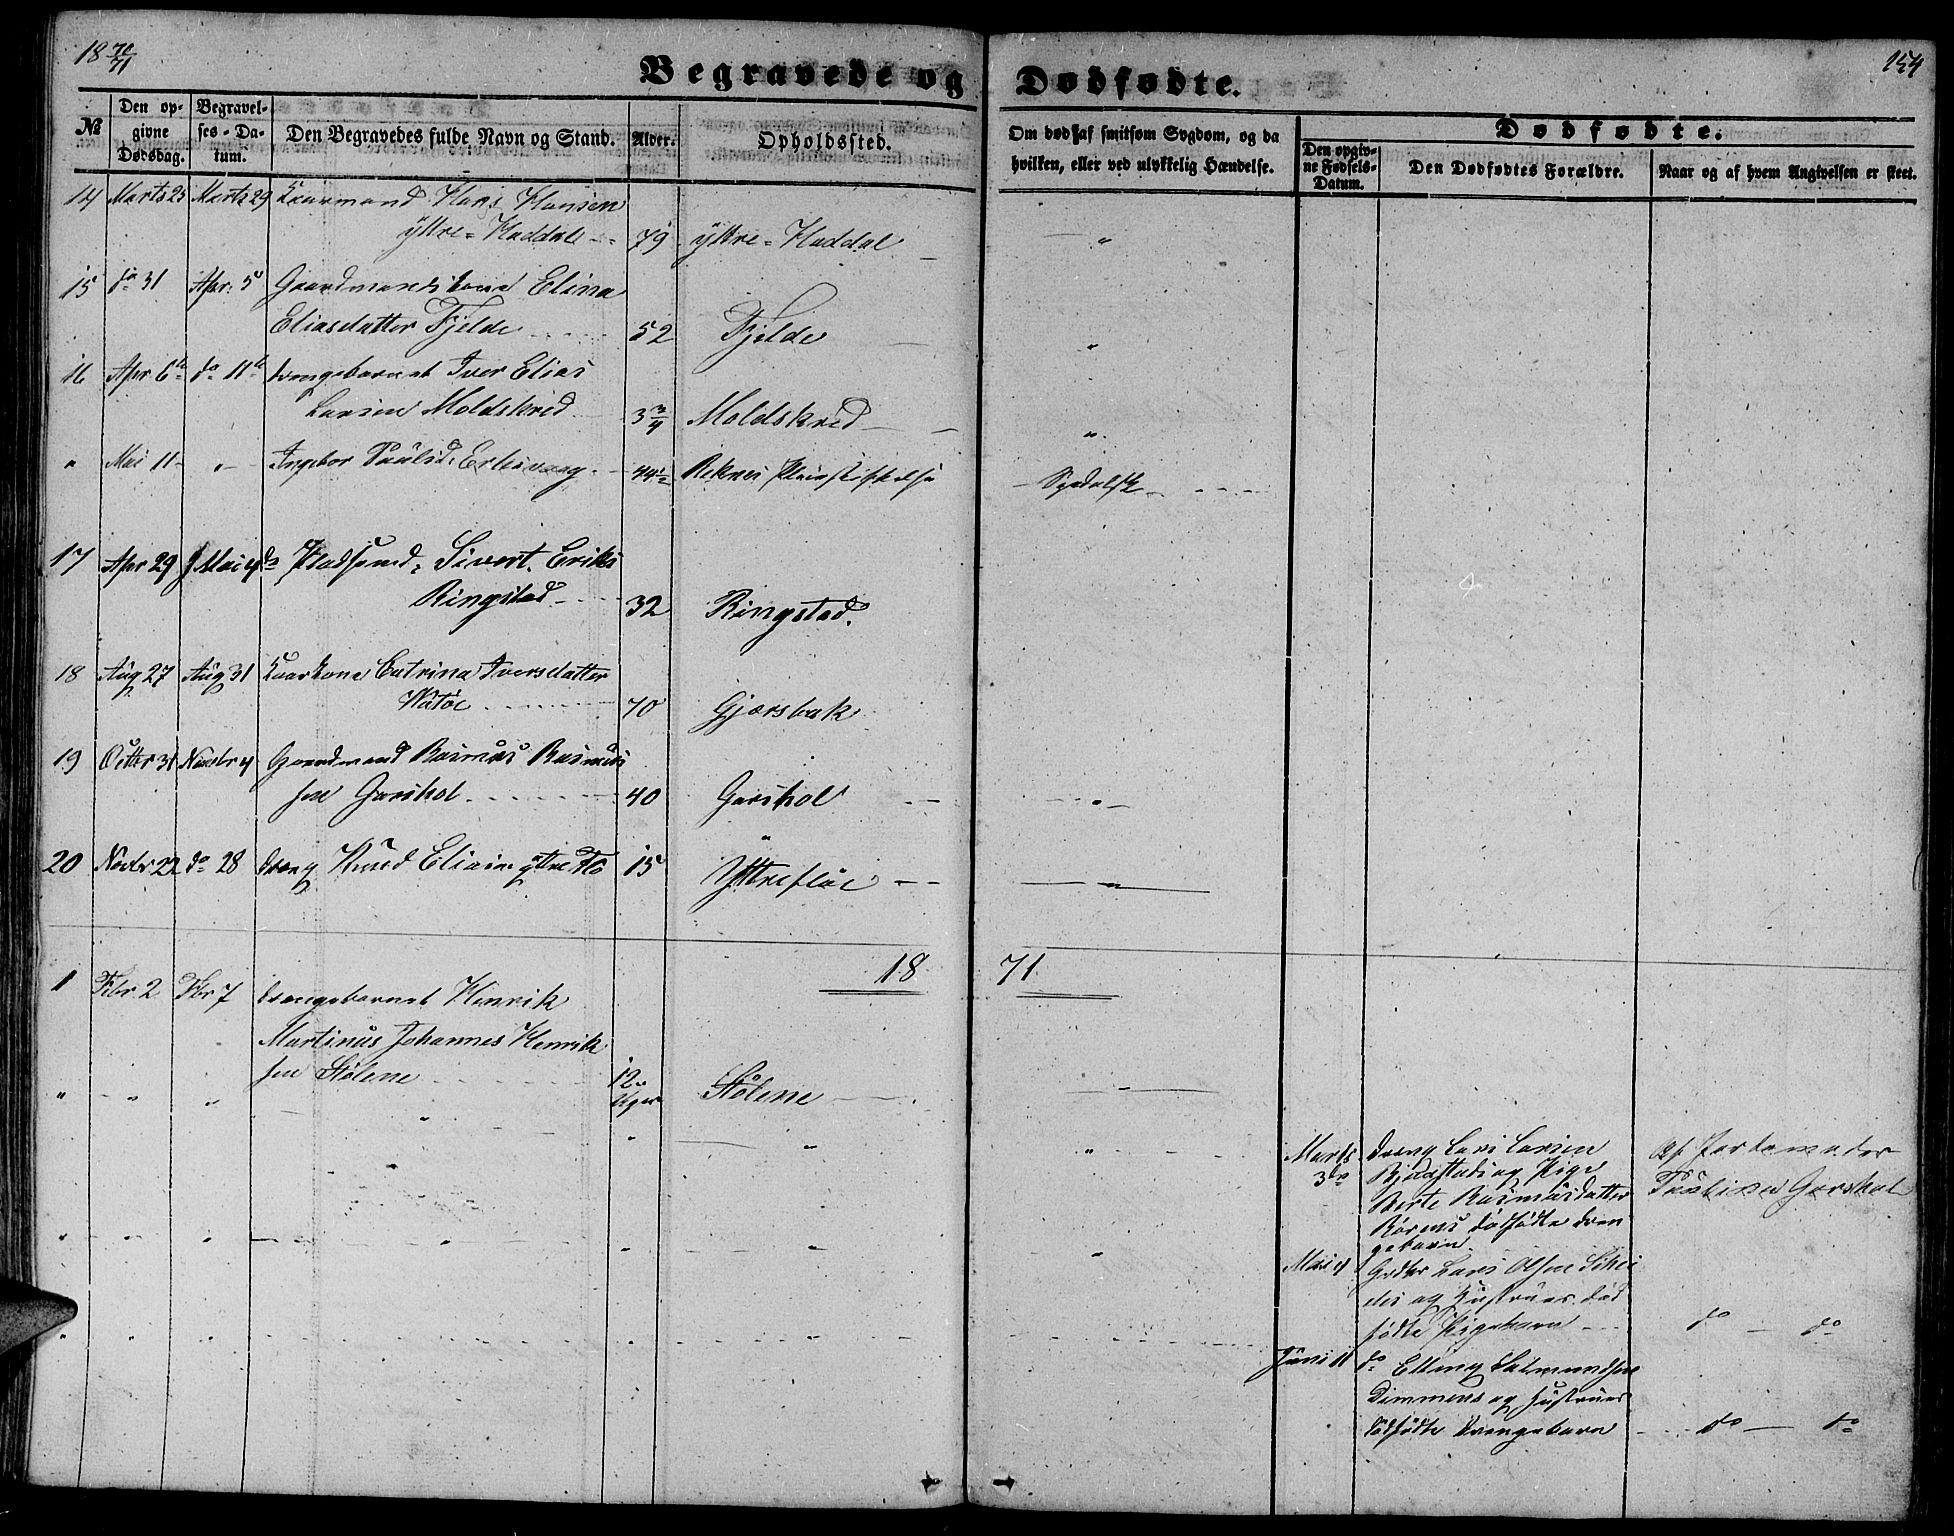 18 70/71
154
Begravede og Dødfødte.
№
Den opgivne Dødsdag.
Begravelses-Datum.
Den Begravedes fulde Navn og Stand.
Alder.
Opholdssted.
Om død af smitsom Sygdom, og da hvilken, eller ved ulykkelig Hændelse.
Dødfødte.
Den opgivne Fødsels-Datum.
Den Dødfødtes Forældre.
Naar og af hvem Angivelsen er skeet.
14 Marts 25 Marts 29 Kaarmand Hans Hansen
Yttre=Haddal 79 Yttre=Haddal "
15 do 31 Apr. 5 Gaardmandskone Elina
Eliasdatter Fjelde 52 Fjelde "
16 Apr 6te do 11te Drengebarnet Iver Elias
Larsen Moldskred 3 3/4 Moldskred "
" Mai 11 " Ingebor Paulsd. Erlesvaag 44 1/2 Reknes Pleiestiftelse Spedalsk
17 Apr 29 Mai 4de Pladsmd. Sivert Eriks
Ringstad 32 Ringstad.
18 Aug 27 Aug 31 Kaarkone Catrina Iversdatter
Watøe 70 Gjærsbak
19 Octbr 31 Novbr 4 Gaardmand Rasmus Rasmus
sen Garshol 40 Garshol "
20 Novbr 22 do 28 Dreng Knud Elias. Yttre Flø 15 Yttrefløe "
18 71
1 Febr 2 Fbr 7 Drengebarnet Henrik
Martinus Johannes Henrik
sen Stølene 12 Uger Stølene "
Marts 3de Dreng Lars Larsen
Bjaastad og Pige
Berte Rasmusdatter
Rørems dødfødte Dren
gebarn
Af Jordemoder
Pauline Garshol
Mai 4 Grdbr Lars Olsen Skei
des og Hustrues død
fødte Pigebarn do do
Juni 11 do Elling Salmundsen
Dimmens og Hustrues
dødfødte Drengebarn do do